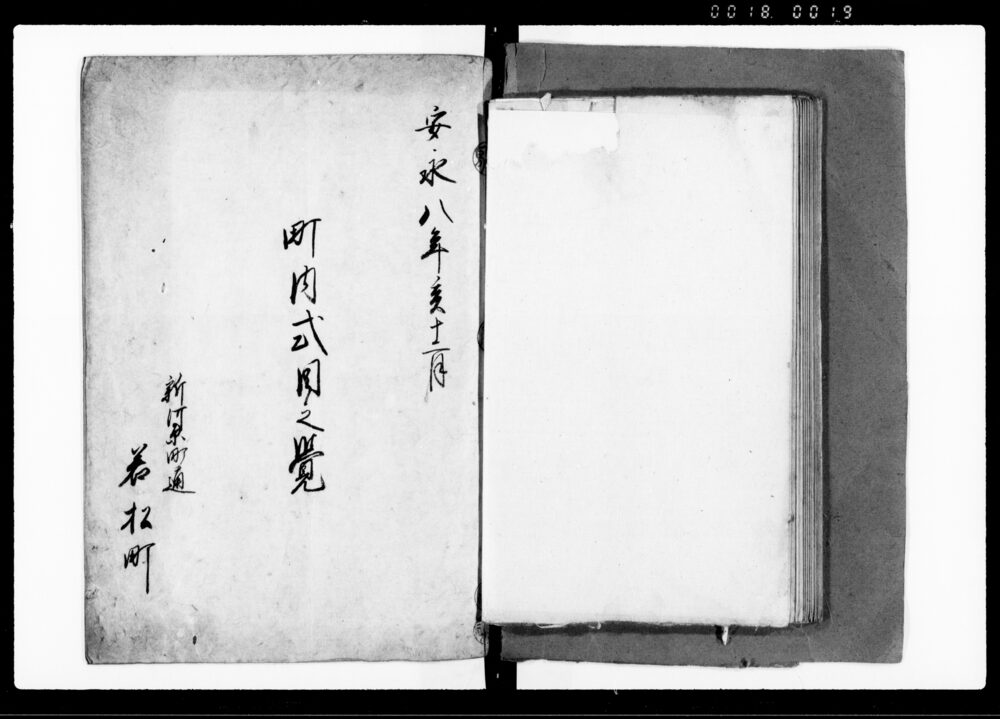 0018 0019
安永八年亥十二月
町内式目之覺
新河原町通
若松町